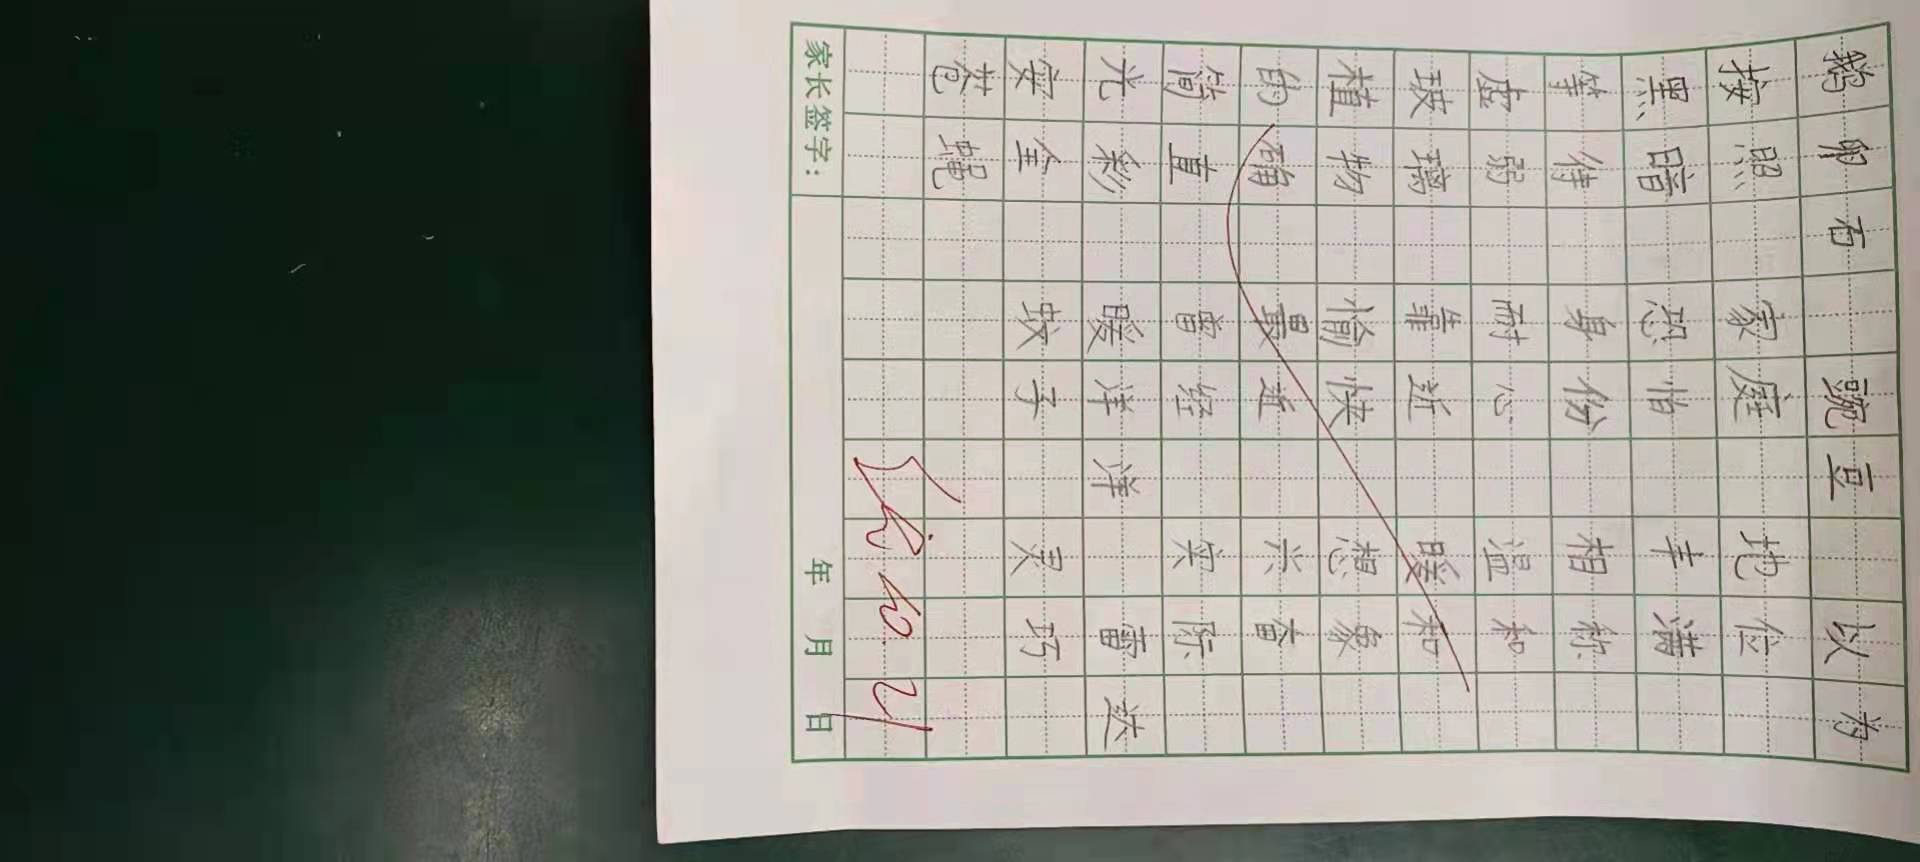 鹅卵石 豌豆 以为
按照 家庭 地位
黑暗 恐怕 丰满
等待 身份 相称
虚弱 耐心 温和
玻璃 靠近 暖和
植物 愉快 想象
的确 最近 兴奋
简直 曾经 实际
光彩 暖洋洋 雷达
安全 蚊子 灵巧
苍蝇
家长签字： 年 月 日